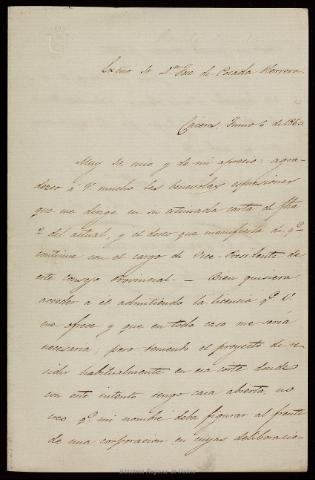 Exmo Sr Dn José de Posada Herrera
Cáceres Junio 6 de 1860
Muy Sr mio y de mi aprecio: agra-
dezco á V. mucho las benévolas espresiones
que me dirige en su estimada carta de fha
2 del actual, y el deseo que manifiesta de qe
continue con el cargo de Vice-Presidente de
este Consejo Provincial. — Bien quisiera
acceder a él admitiendo la licencia qe V.
me ofrece y que en todo caso me seria
necesaria; pero teniendo el proyecto de re-
sidir habitualmente en esa corte donde
con este intento tengo casa abierta, no
creo qe mi nombre deba figurar al frente
de una corporacion en cuyas deliberacio-